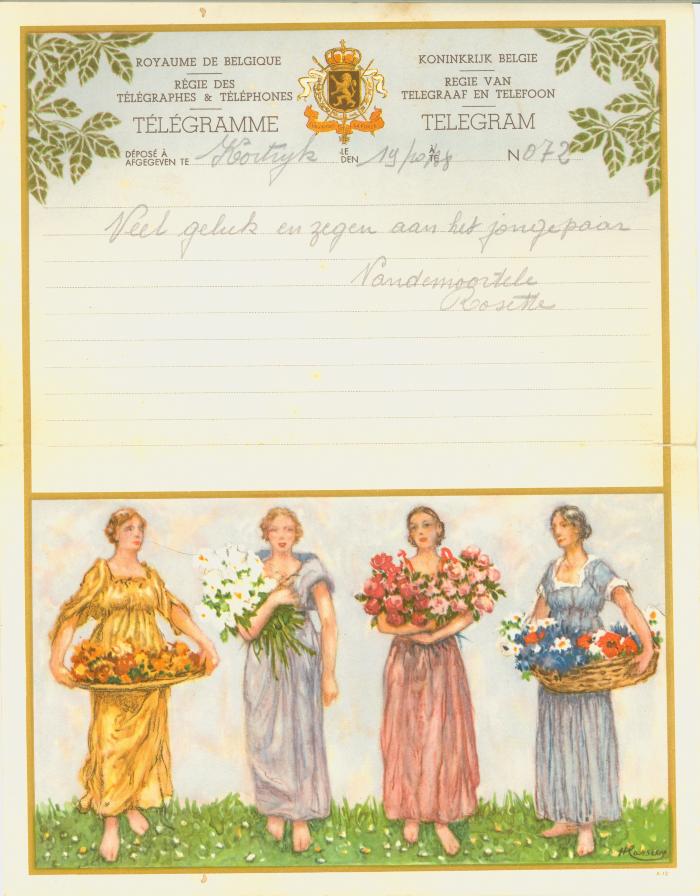 ROYAUME DE BELGIQUE
RÉGIE DES
TÉLÉGRAPHES & TÉLÉPHONES
TÉLÉGRAMME
KONINKRIJK BELGIE
REGIE VAN
TELEGRAAF EN TELEFOON
TELEGRAM
DÉPOSÉ À
AFGEGEVEN TE Kortryk LE
DEN 19/10/48 À
TE N 072
Veel geluk en zegen aan het jongepaar
Vandemoortele
Rosette